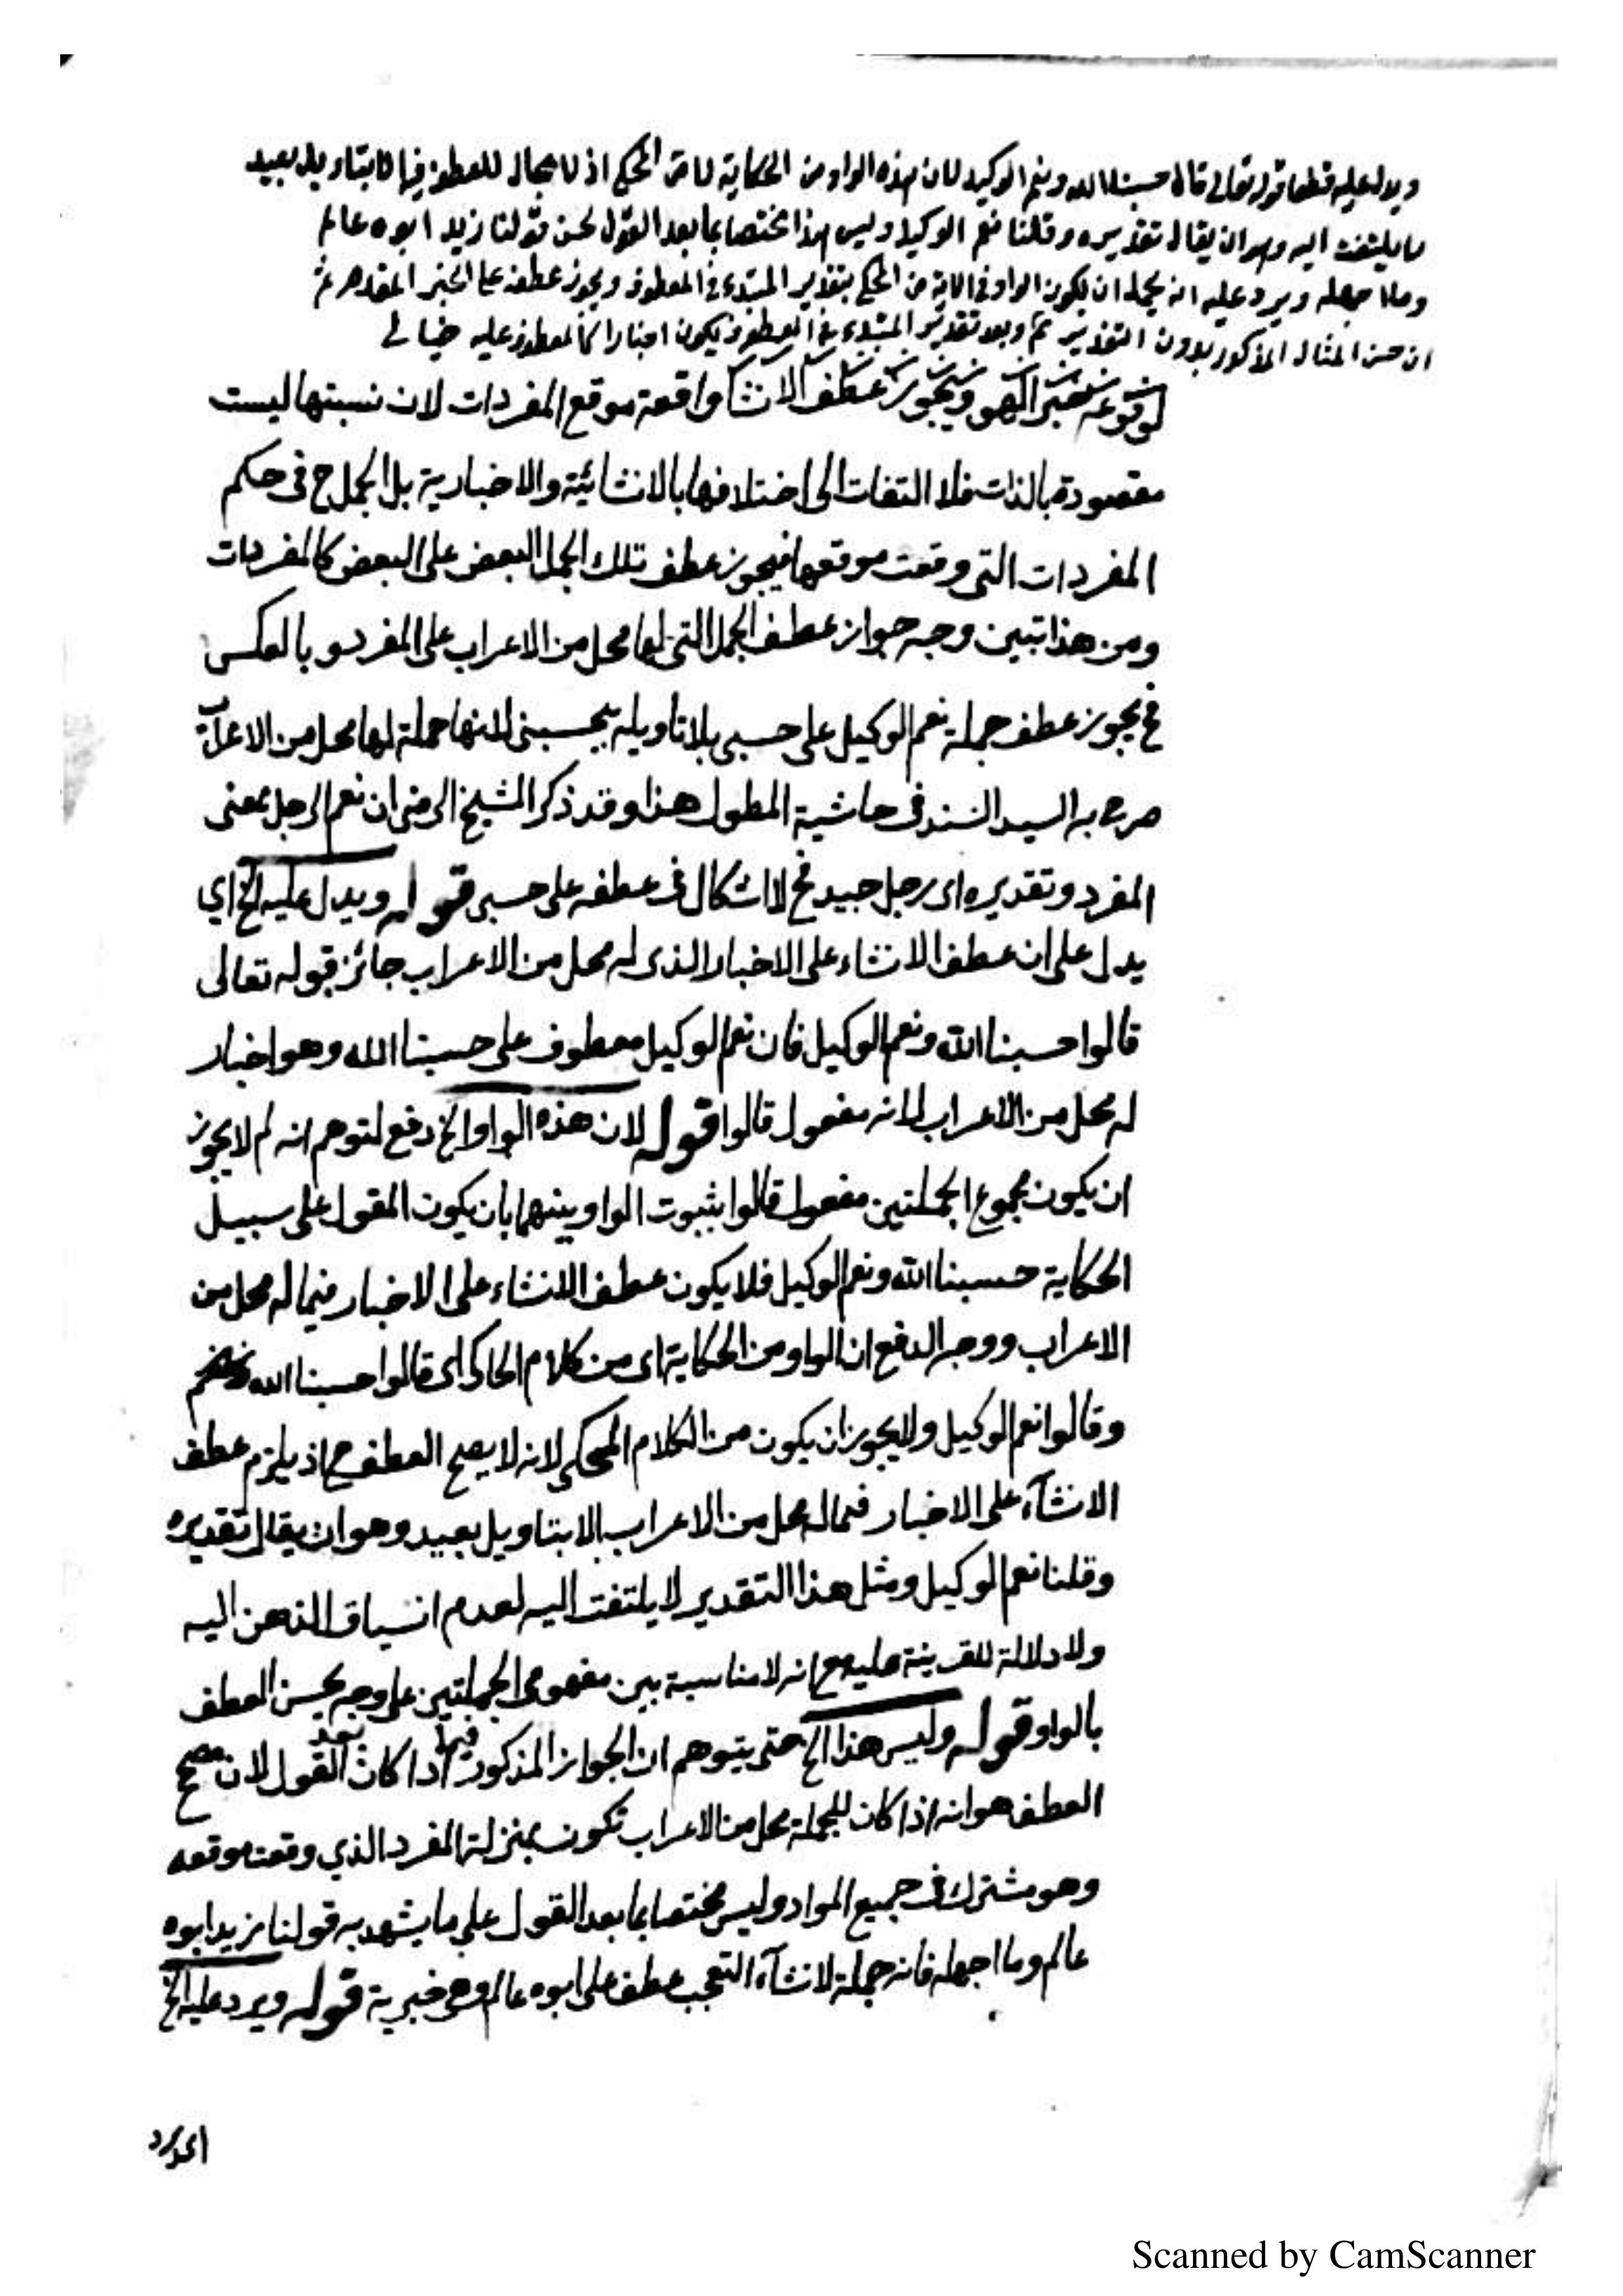 ويدل عليه قطعا قوله تعالى قالوا حسبنا الله ونعم الوكيل لان هذه الواو من الحكاية لا من المحكي اذ لا مجال للعطف فيه الا بتاويل بعيد
لا يلتفت اليه وهو ان يقال تقديره وقلنا نعم الوكيل وليس هذا مختصا بما بعد القول لحسن قولنا زيد ابوه عالم
وما اجهله ويرد عليه انه يحمل ان يكون الواو في الاية من المحكي بتقدير المبتدء في المعطوف ويجوز عطفه على الخبر المقدم ثم
ان حسن المثال المذكور بدون التقدير ثم وبعد تقدير المبتدء في المعطوف يكون اخبارا كالمعطوف عليه خيالي
واقعة موقع المفردات لان نسبتها ليست
مقصودة بالذات فلا التفات الى اختلافها بالانشائية والاخبارية بل الجمل ح في حكم
المفردات التي وقعت موقعها فيجوز عطف تلك الجمل البعض على البعض كالمفردات
ومن هذا تبين وجه جواز عطف الجمل التي لها محل من الاعراب على المفرد وبالعكس
فح يجوز عطف جملة نعم الوكيل على حسبي بلا تاويله بيحسبني لانها جملة لها محل من الاعراب
صرح به السيد السند في حاشية المطول هذا وقد ذكر الشيخ الرضى ان نعم الرجل بمعنى
المفرد وتقديره اى رجل جيد فح لا اشكال في عطفه على حسبي قوله ويدل عليه الخ اي
يدل على ان عطف الانشاء على الاخبار الذى له محل من الاعراب جائز قوله تعالى
قالوا حسبنا الله ونعم الوكيل فان نعم الوكيل معطوف على حسبنا الله وهو اخبار
له محل من الاعراب لانه مفعول قالوا قوله لان هذه الواو الخ دفع لتوهم انه لم لا يجوز
ان يكون مجموع الجملتين مفعول قالوا بثبوت الواو بينهما بان يكون المقول على سبيل
الحكاية حسبنا الله ونعم الوكيل فلا يكون عطف الانشاء على الاخبار فيما له محل من
الاعراب ووجه الدفع ان الواو من الحكاية اى من كلام الحاكى اى قالوا حسبنا الله
وقالوا نعم الوكيل ولا يجوز ان يكون من الكلام المحكى لانه لا يصح العطف ح اذ يلزم عطف
الانشآء على الاخبار فيما له محل من الاعراب الا بتاويل بعيد وهو ان يقال تقديره
وقلنا نعم الوكيل ومثل هذا التقدير لا يلتفت اليه لعدم انسياق الذهن اليه
ولا دلالة للقرينة عليه مع انه لا مناسبة بين مفهومى الجملتين على وجه يحسن العطف
بالواو قوله وليس هذا الخ حتى يتوهم ان الجواز المذكور فيما اذا كان بعد القول لان مصحح
العطف هو انه اذا كان للجملة محل من الاعراب تكون بمنزلة المفرد الذي وقعت موقعه
وهو مشترك في جميع المواد وليس مختصا بما بعد القول على ما يشهد به قولنا زيد ابوه
عالم وما اجهله فانه جملة لانشآء التعجب عطف على ابوه عالم وهى خبرية قوله ويرد عليه الخ
Scanned by CamScanner